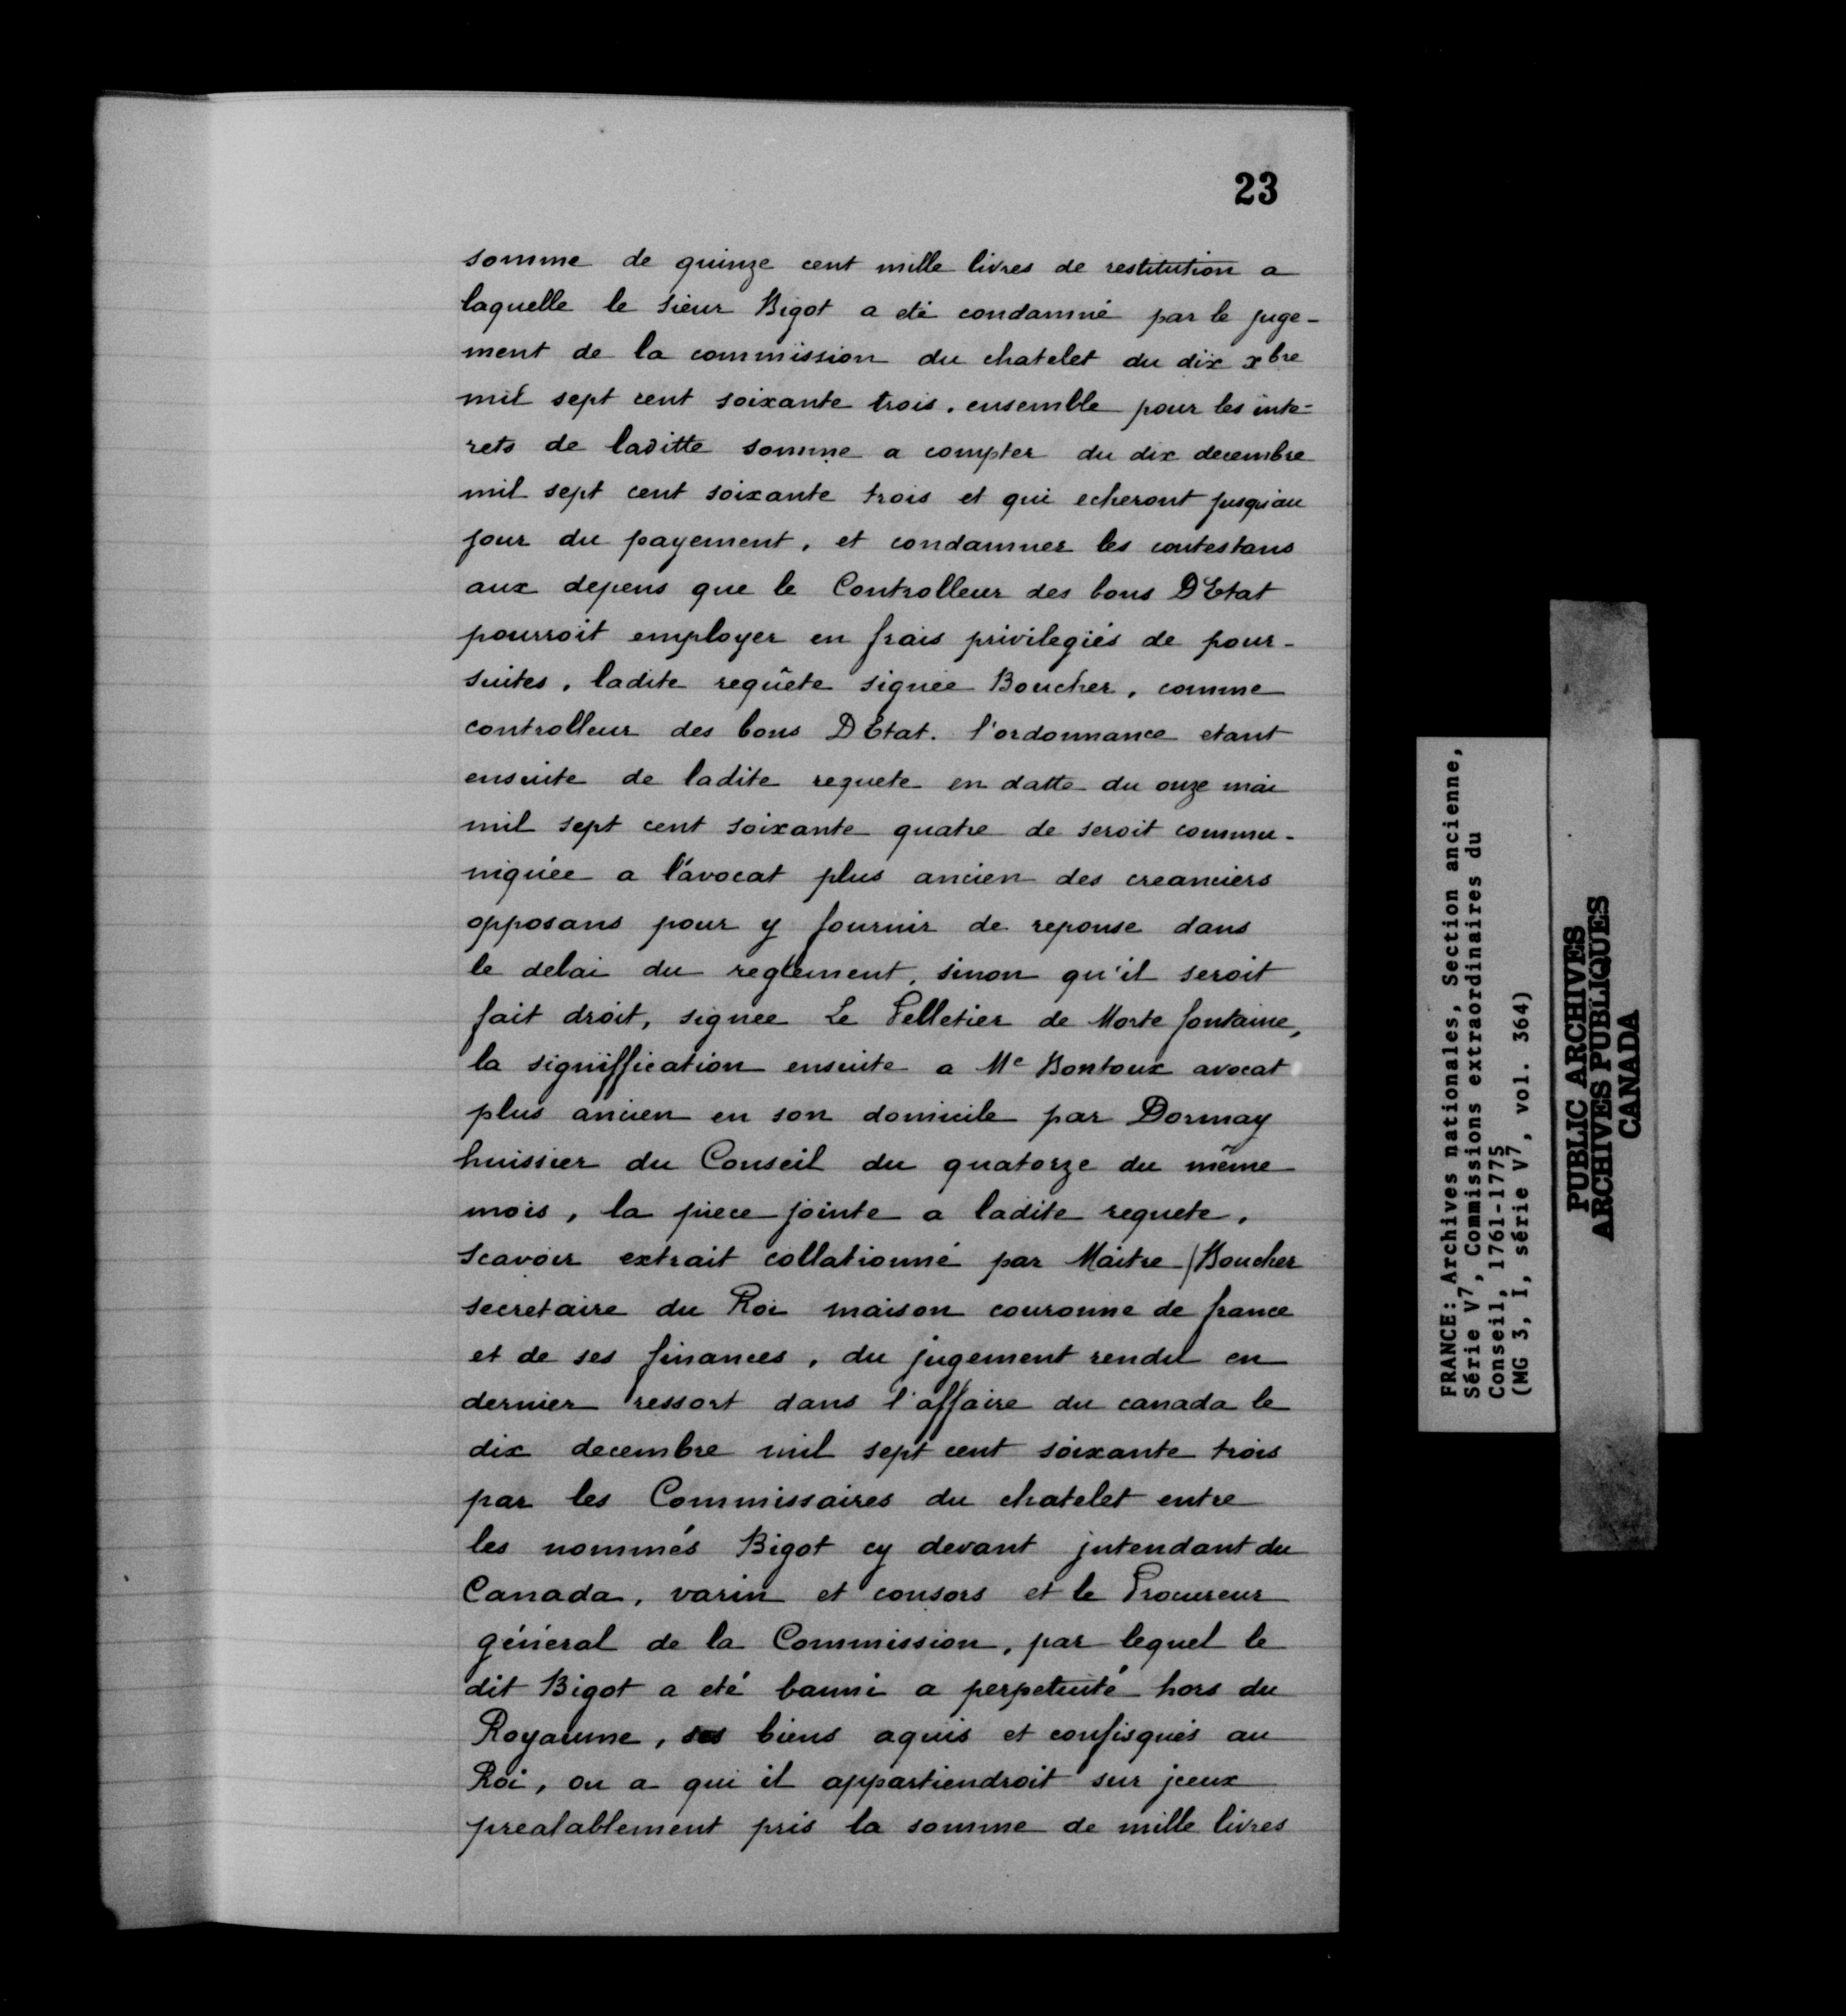 23
somme de quinze cent mille livres de restitution a
laquelle le sieur Bigot a eté condamné par le juge-
ment de la commission du chatelet du dix xbre
mil sept cent soixante trois. ensemble pour les inte-
rets de laditte somme a compter du dix decembre
mil sept cent soixante trois et qui echeront jusqu'au
jour du payement, et condamner les contestans
aux depens que le Controlleur des bons D'Etat
pourroit employer en frais privilegiés de pour-
suites, ladite requête signée Boucher, comme
controlleur des bons D'Etat. l'ordonnance etant
ensuite de ladite requete en datte du onze mai
mil sept cent soixante quatre de seroit commu-
niquée a l'avocat plus ancien des creanciers
opposans pour y fournir de reponse dans
le delai du reglement, sinon qu'il seroit
fait droit, signée Le Pelletier de Morte fontaine,
la signiffication ensuite a Me Bontoux avocat
plus ancien en son domicile par Dormay
huissier du Conseil du quatorze du même
mois, la piece jointe a ladite requete,
scavoir extrait collationné par Maitre Boucher
secretaire du Roi maison couronne de france
et de ses finances, du jugement rendu en
dernier ressort dans l'affaire du canada le
dix decembre mil sept cent soixante trois
par les Commissaires du chatelet entre
les nommés Bigot cy devant jntendant du
Canada, varin et consors et le Procureur
général de la Commission, par lequel le
dit Bigot a eté banni a perpetuité hors du
Royaume, ses biens aquis et confisqués au
Roi, ou a qui il appartiendroit sur jceux
prealablement pris la somme de mille livres
FRANCE: Archives nationales, Section ancienne,
Série V7, Commissions extraordinaires du
Conseil, 1761-1775
(MG 3, I, série V7, vol. 364)
PUBLIC ARCHIVES
ARCHIVES PUBLIQUES
CANADA